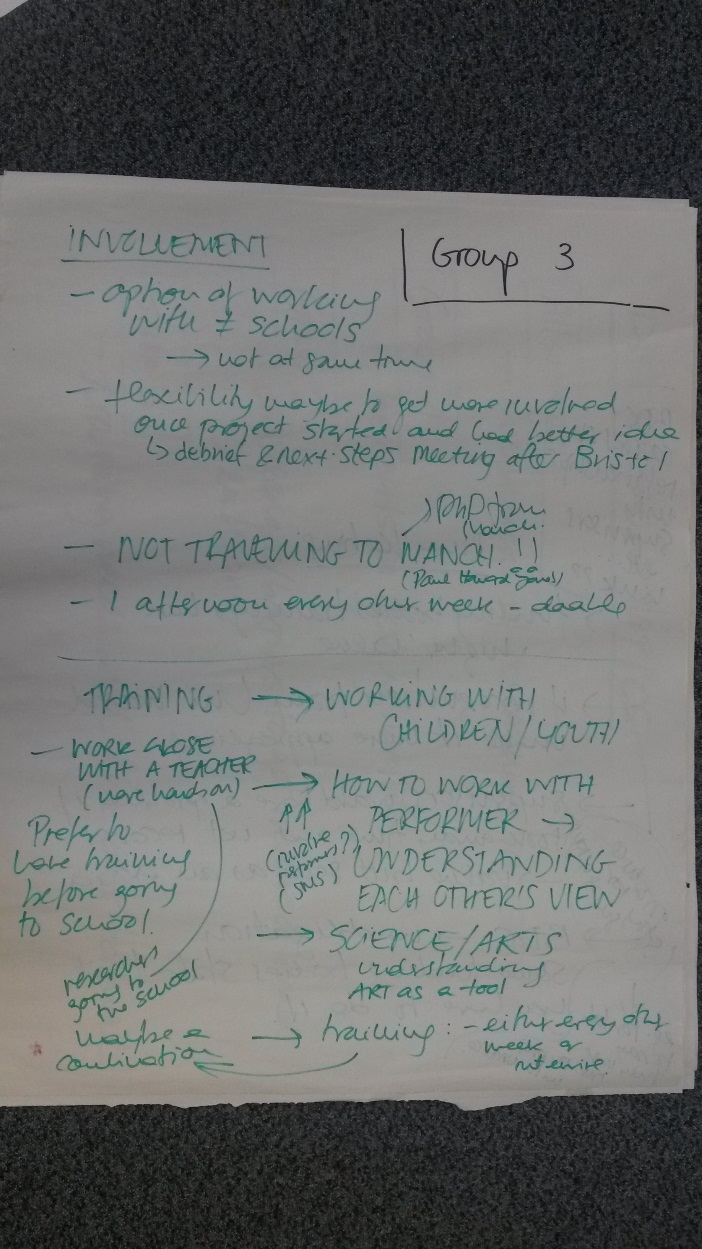 Group 3
INVOLVEMENT
- option of working
with ≠ schools
→ not at same time
- flexibility maybe to get more involved
once project started and had better idea
↳ debrief & next steps meeting after Bristol
- NOT TRAVELLING TO MANCH. !!
(Paul Howard Jones)
- 1 afternoon every other week - doable
TRAINING → WORKING WITH
CHILDREN/YOUTH
- WORK CLOSE
WITH A TEACHER
(more hands on)
→ HOW TO WORK WITH
PERFORMER →
UNDERSTANDING
EACH OTHER'S VIEW
(involve
?)
Prefer to
have training
before going
to school.
→ SCIENCE/ARTS
understanding
ART as a tool
researchers
going to
the school
maybe a
combination
→ training : - either every other
week or
intensive.